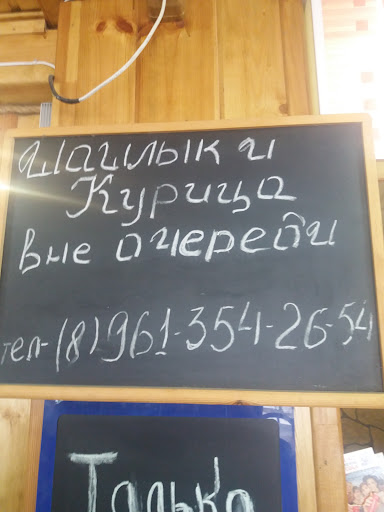 Шашлык и
Курица
вне очереди
тел-(8)961-354-26-54
Только